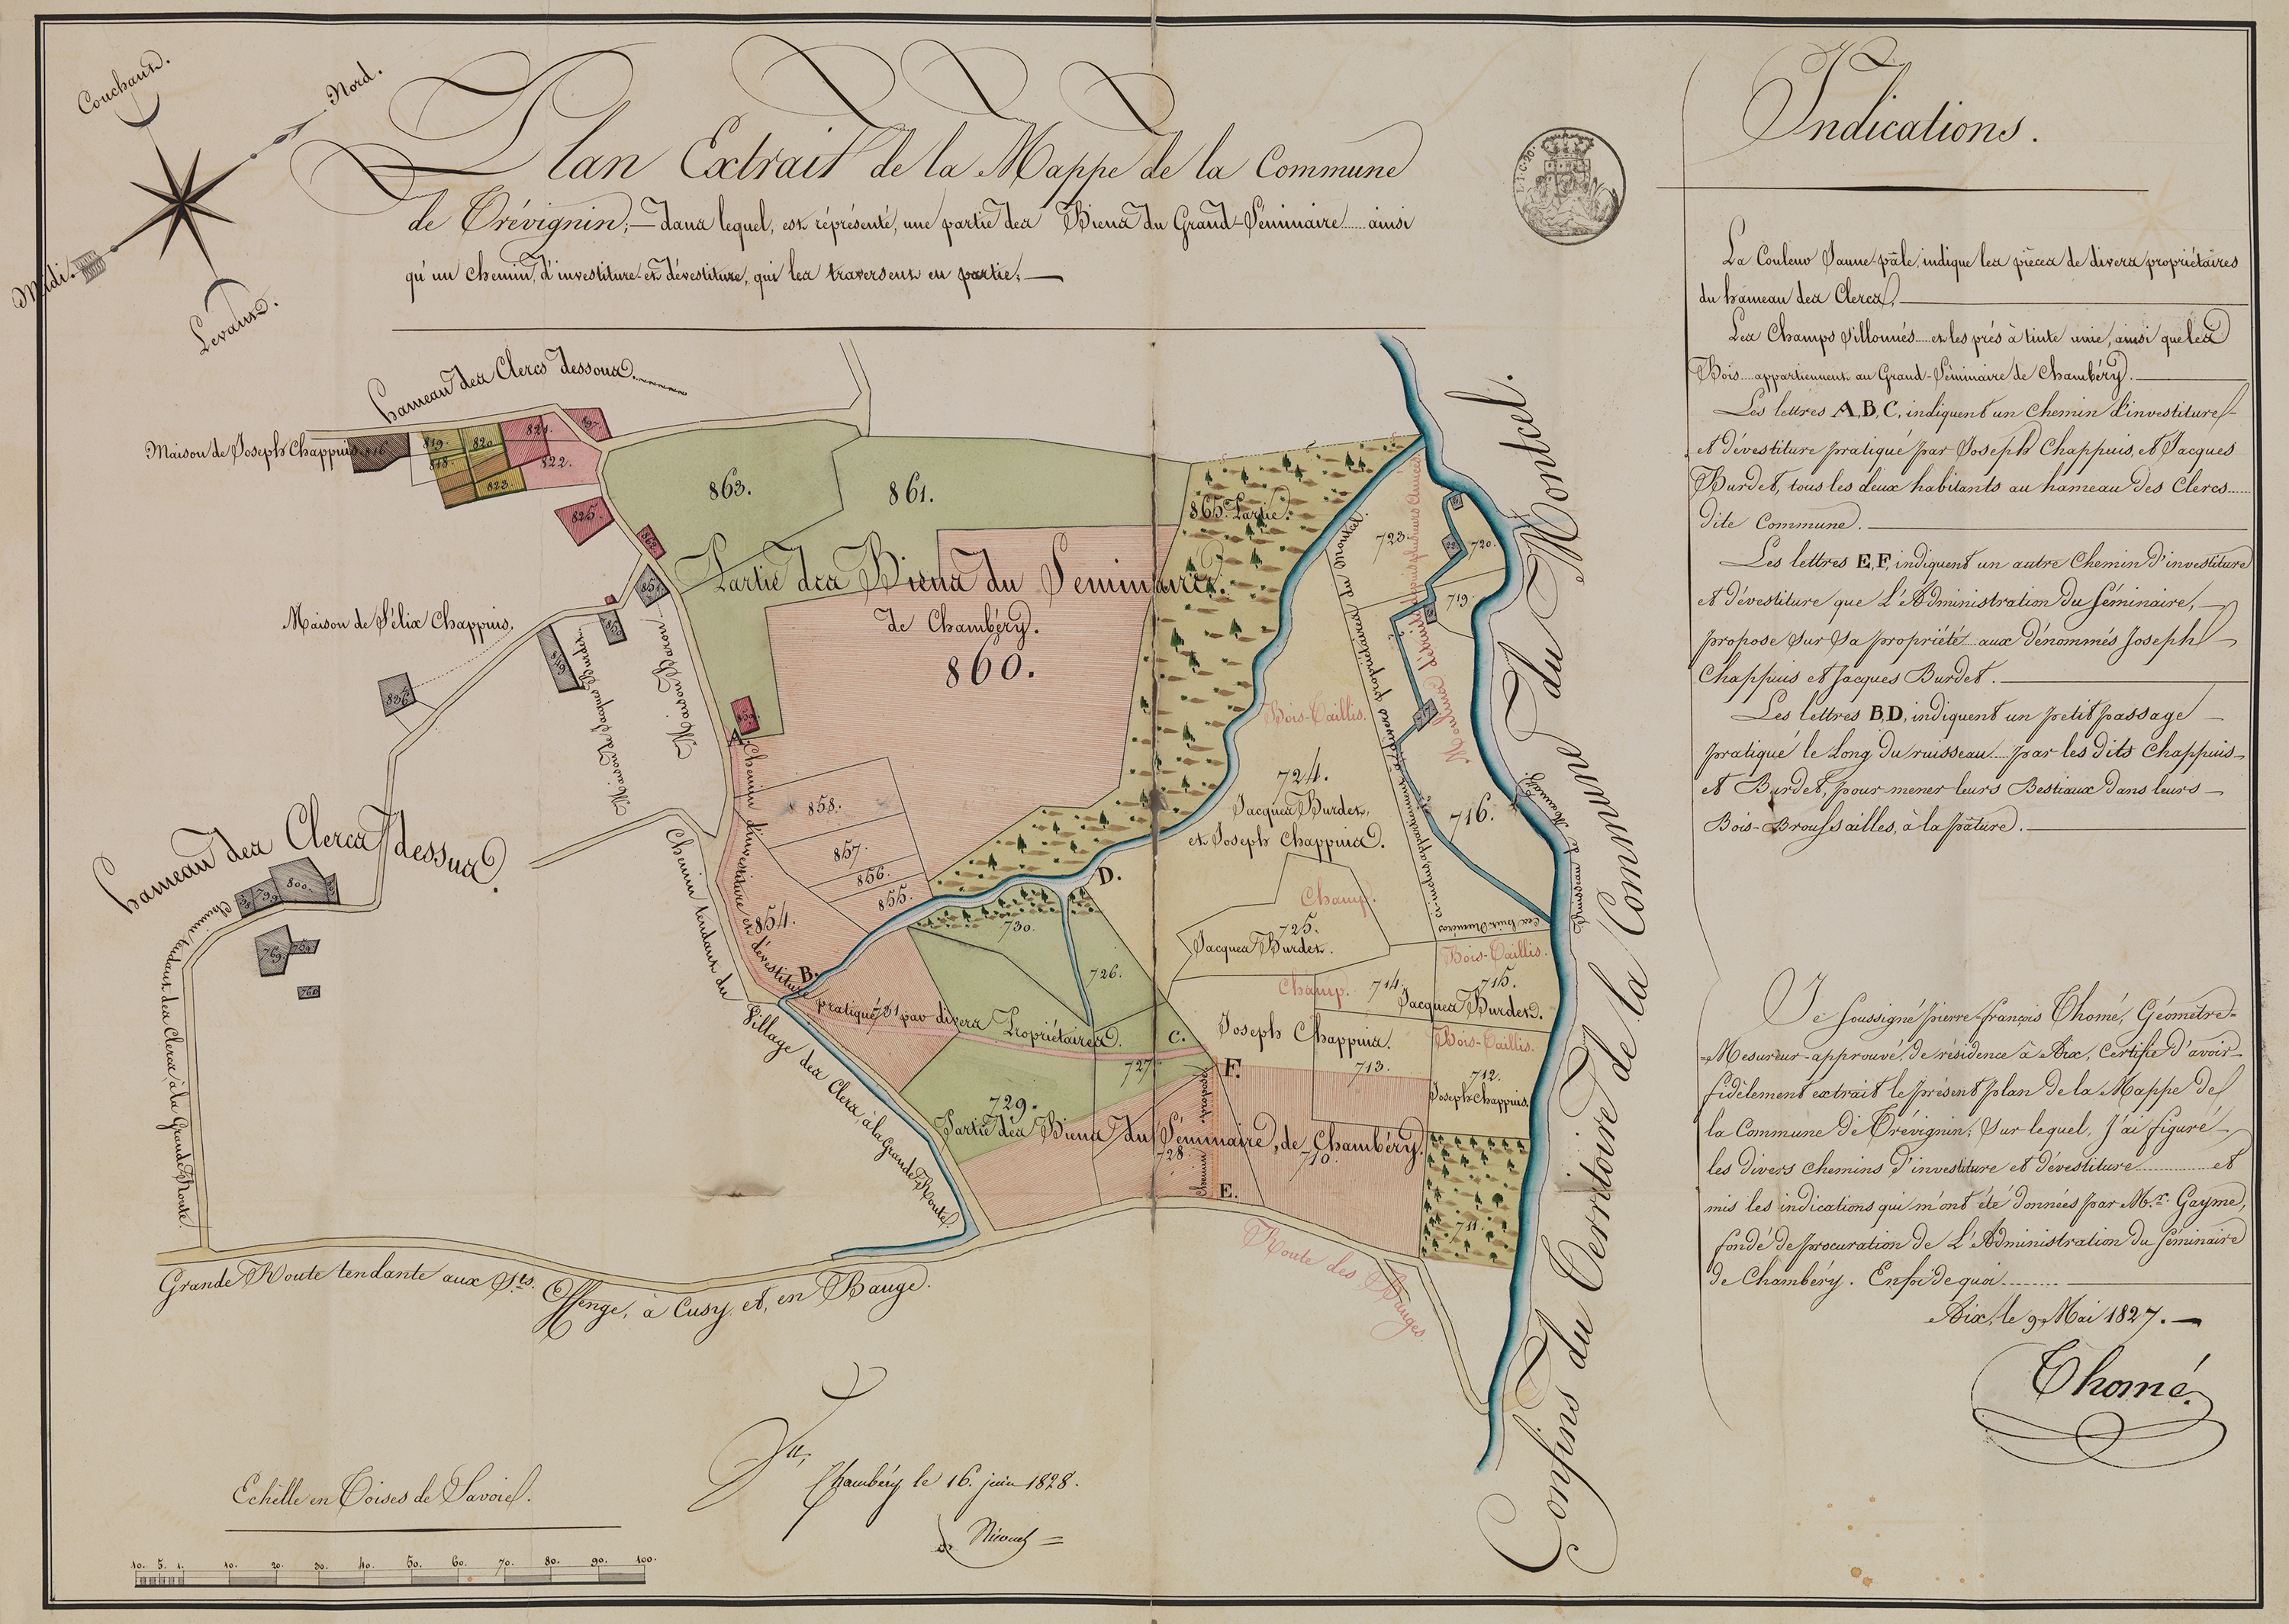 Couchant.
Nord.
Midi.
Levant.
Plan Extrait de la Mappe de la Commune
de Trévignin; — dans lequel, est réprésenté, une partie des Biens du Grand-Séminaire ...... ainsi
qu'un chemin, d'investiture et dévestiture, qui les traversent en partie; —
T.I.C.20.
hameau des Clercs dessous.
Maison de Joseph Chappuis.
816.
819.
820.
821.
818.
822.
823.
825.
862.
863.
861.
865. Partie.
Partie des Biens du Seminaire.
de Chambéry.
860.
851.
Maison Baron
Maison de Jacques Burdet
849
Maison de Félix Chappuis.
836.
859.
A.
Chemin d'investiture et d'évestiture pratiqué par divers Propriétaires.
858.
857.
856.
855.
854.
B.
D.
731
730.
726.
C.
727.
729.
F.
Chemin proposé.
E.
728.
710.
711.
Partie des Biens du Séminaire, de Chambéry.
723.
720.
22.
719.
18
717.
716.
Moulins détruits depuis plusieurs années
Bois-Taillis.
724.
Jacques Burdet,
et Joseph Chappuis.
Champ.
725.
Jacques Burdet.
Bois-Taillis.
Champ.
714.
715.
Jacques Burdet.
Joseph Chappuis.
Bois-Taillis.
713.
712.
Joseph Chappuis.
hameau des Clercs dessus.
799
800.
769.
Chemin tendant des Clercs à la Grande Route.
Chemin tendant du Village des Clers, à la Grande Route.
Grande Route tendante aux Sts. Offenge, à Cusy, et, en Bauge.
Route des Bauges
Confins du Territoire de la Commune du Montcel.
Echelle en Toises de Savoie.
10. 5. 1. 10. 20. 30. 40. 50. 60. 70. 80. 90. 100.
Vu,
Chambéry le 16. juin 1828.
Indications.
La Couleur Jaune-pâle, indique les pièces de divers propriétaires
du hameau des Clercs, —
Les Champs sillonnés .... et les prés à tinte unie, ainsi que les
Bois .... appartiennent au Grand-Séminaire de Chambéry. —
Les lettres A, B, C, indiquent un chemin d'investiture
et d'évestiture pratiqué par Joseph Chappuis, et Jacques
Burdet, tous les deux habitants au hameau des Clercs .....
dite Commune. —
Les lettres E, F, indiquent un autre Chemin d'investiture
et d'évestiture que L'Administration du Séminaire, —
propose sur sa propriété .... aux dénommés Joseph
Chappuis et Jacques Burdet. —
Les lettres B, D, indiquent un petit passage —
pratiqué le Long du ruisseau .... par les dits Chappuis
et Burdet, pour mener leurs Bestiaux dans leurs —
Bois-Broussailles, à la pâture. —
Je Soussigné pierre-françois Thomé, Géomètre-
Mesureur-approuvé, de résidence à Aix, Certifie d'avoir
fidèlement extrait le présent plan de la Mappe de
la Commune de Trévignin; sur lequel, J'ai figuré —
les divers chemins d'investiture et d'évestiture .............. et
mis les indications qui m'ont été données par Mr. Gayme,
fondé de procuration de L'Administration du Séminaire
de Chambéry. En foi de quoi ......... —
Aix, le 9, Mai 1827. —
Thomé.